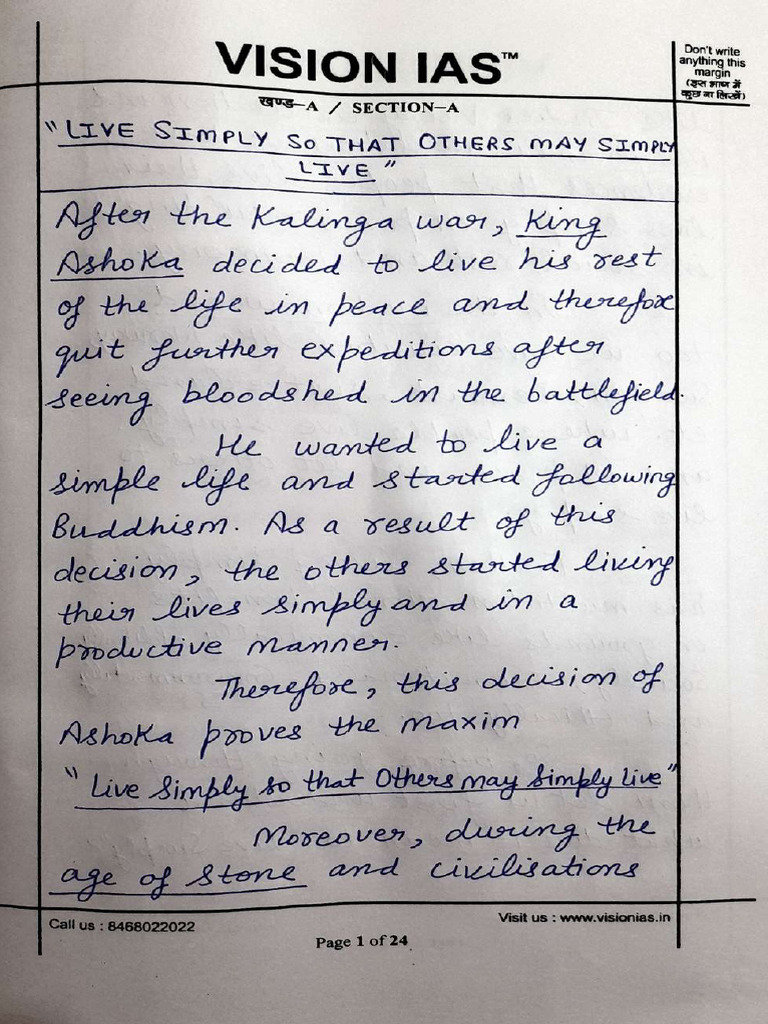 VISION IAS™
Don't write
anything this
margin
(इस भाग में
कुछ ना लिखें)
खण्ड-A / SECTION-A
"LIVE SIMPLY SO THAT OTHERS MAY SIMPLY
LIVE"
After the Kalinga war, King
Ashoka decided to live his rest
of the life in peace and therefore
quit further expeditions after
seeing bloodshed in the battlefield.
He wanted to live a
simple life and started following
Buddhism. As a result of this
decision, the others started living
their lives simply and in a
productive manner.
Therefore, this decision of
Ashoka proves the maxim
"Live Simply so that Others may Simply Live"
Moreover, during the
age of stone and civilisations
Call us : 8468022022
Visit us : www.visionias.in
Page 1 of 24